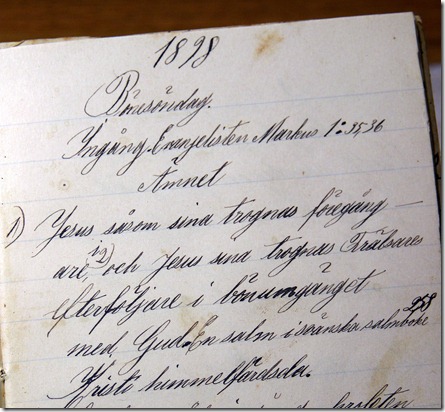 1898
Bönsöndag.
Ingång Evanjelisten Markus 1: 35,36
Ämnet
1) Jesus såsom sina trognas föregång-
are, 1,2) och Jesus sina trognas
Efterföljare i bönumgänget 258
med Gud. En salm i svänska salmboke
Kristi himmelfärdsda.